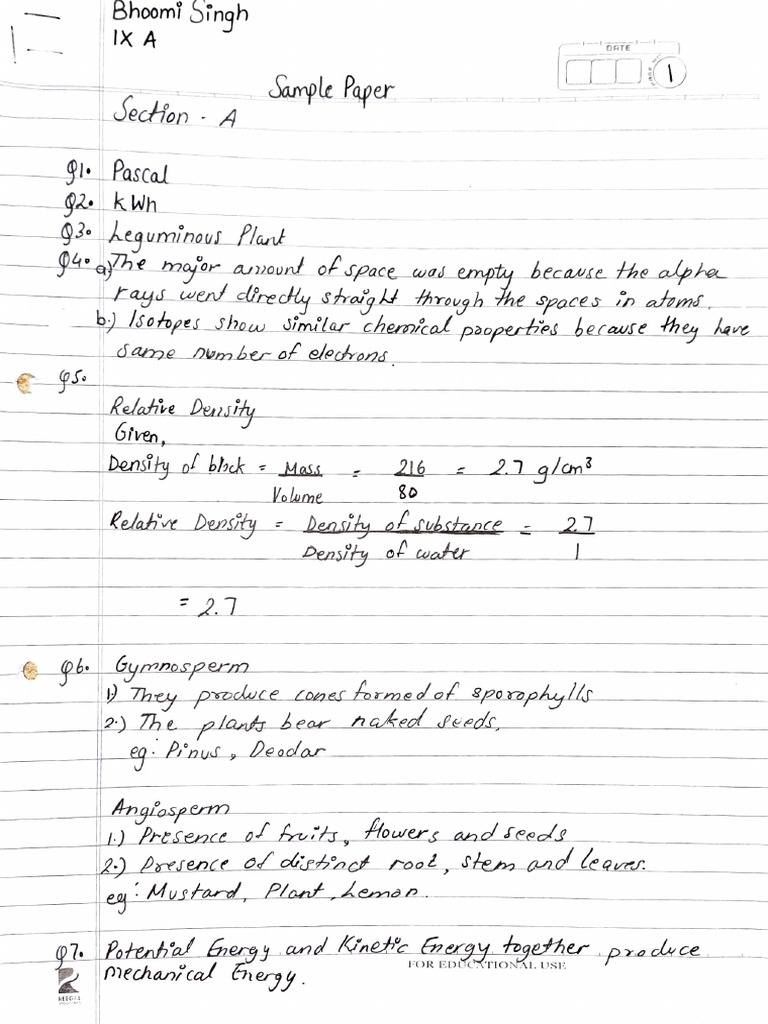 Bhoomi Singh
IX A
DATE
PAGE NO. 1
Sample Paper
Section - A
Q1. Pascal
Q2. kWh
Q3. Leguminous Plant
Q4. a) The major amount of space was empty because the alpha
rays went directly straight through the spaces in atoms.
b.) Isotopes show similar chemical properties because they have
same number of electrons.
Q5.
Relative Density
Given,
Density of block = Mass / Volume = 216 / 80 = 2.7 g/cm³
Relative Density = Density of substance / Density of water = 2.7 / 1
= 2.7
Q6. Gymnosperm
1) They produce cones formed of sporophylls
2.) The plants bear naked seeds.
eg: Pinus, Deodar
Angiosperm
1.) Presence of fruits, flowers and seeds
2.) Presence of distinct root, stem and leaves.
eg: Mustard, Plant, Lemon.
Q7. Potential Energy and Kinetic Energy together produce
mechanical Energy.
FOR EDUCATIONAL USE